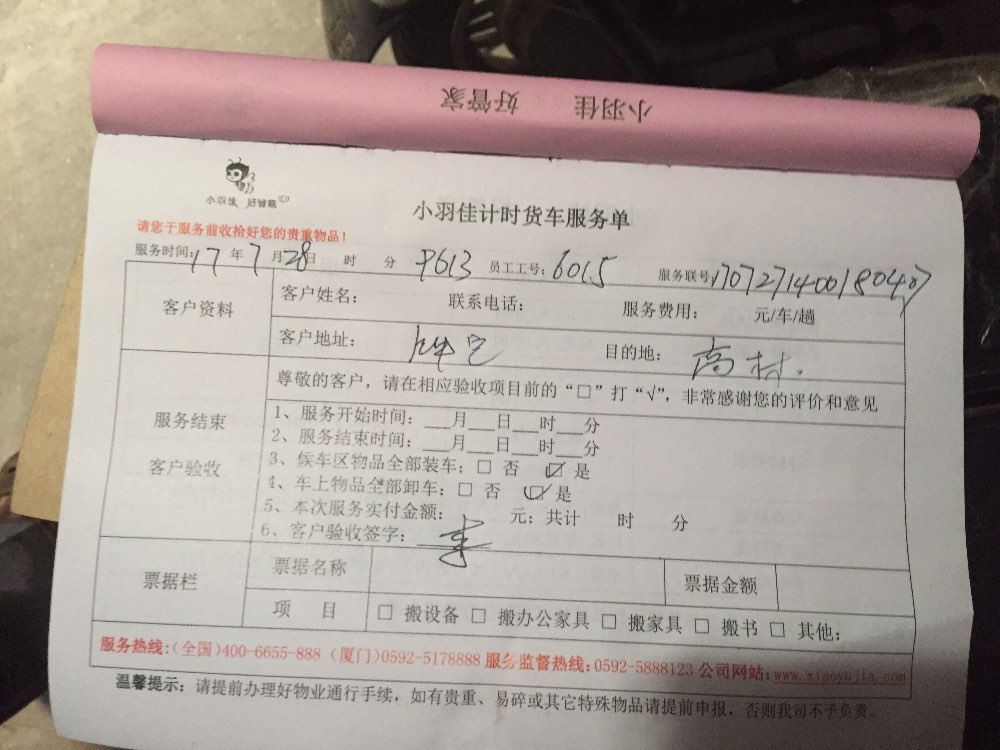 小羽佳 好管家
小羽佳 好管家
小羽佳计时货车服务单
请您于服务前收拾好您的贵重物品！
服务时间：17 年 7 月 28 日 时 分 P613 员工工号：6015 服务联号：
客户资料 客户姓名： 联系电话： 服务费用： 元/车/趟
客户地址： 目的地： 高村.
服务结束 客户验收
尊敬的客户，请在相应验收项目前的“□”打“√”，非常感谢您的评价和意见
1、服务开始时间：___月___日___时___分
2、服务结束时间：___月___日___时___分
3、候车区物品全部装车：□ 否 ☑ 是
4、车上物品全部卸车：□ 否 ☑ 是
5、本次服务实付金额： 元；共计 时 分
6、客户验收签字：
票据栏 票据名称 票据金额
项 目 □ 搬设备 □ 搬办公家具 □ 搬家具 □ 搬书 □ 其他：
服务热线：（全国）400-6655-888（厦门）0592-5178888 服务监督热线：0592-5888123 公司网站：www.xiaoyujia.com
温馨提示：请提前办理好物业通行手续，如有贵重、易碎或其它特殊物品请提前申报，否则我司不予负责。